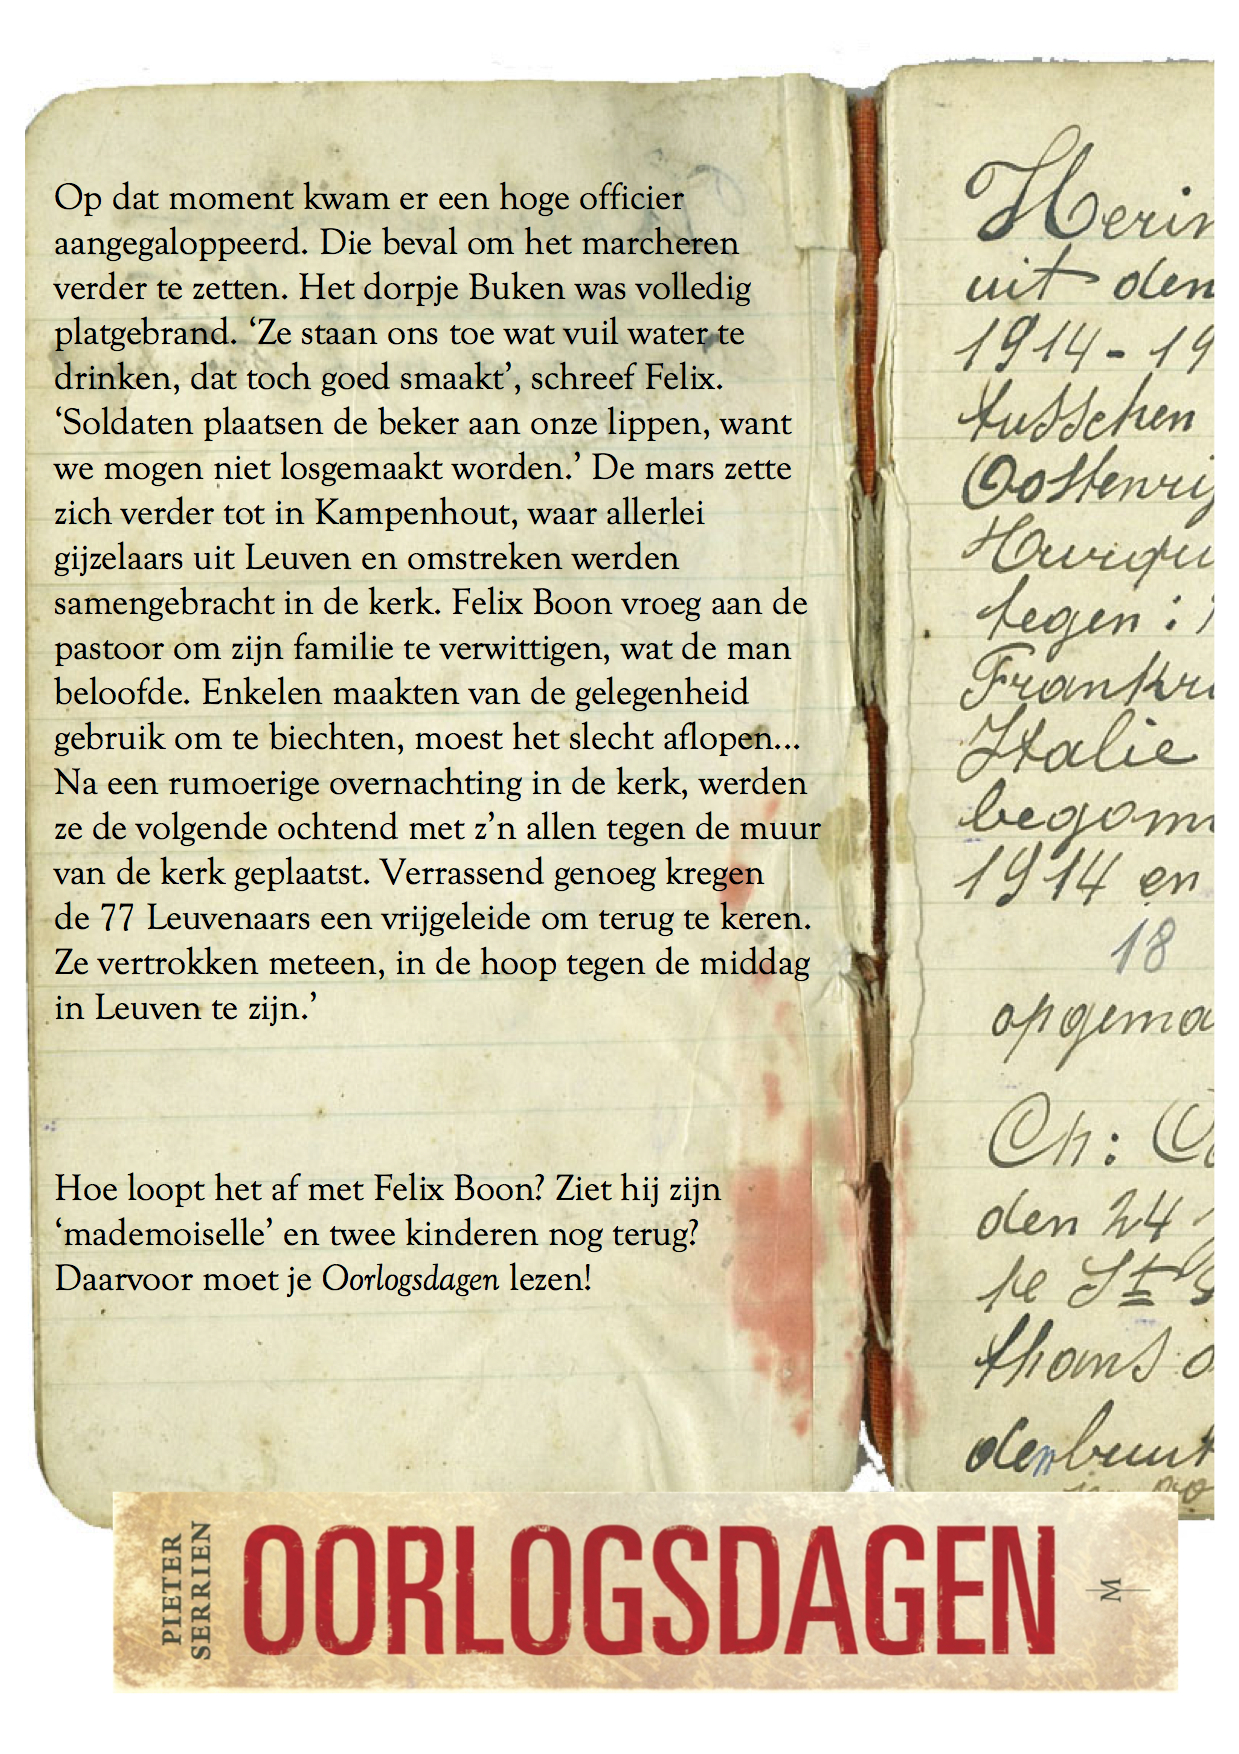 Op dat moment kwam er een hoge officier
aangegaloppeerd. Die beval om het marcheren
verder te zetten. Het dorpje Buken was volledig
platgebrand. ‘Ze staan ons toe wat vuil water te
drinken, dat toch goed smaakt’, schreef Felix.
‘Soldaten plaatsen de beker aan onze lippen, want
we mogen niet losgemaakt worden.’ De mars zette
zich verder tot in Kampenhout, waar allerlei
gijzelaars uit Leuven en omstreken werden
samengebracht in de kerk. Felix Boon vroeg aan de
pastoor om zijn familie te verwittigen, wat de man
beloofde. Enkelen maakten van de gelegenheid
gebruik om te biechten, moest het slecht aflopen...
Na een rumoerige overnachting in de kerk, werden
ze de volgende ochtend met z’n allen tegen de muur
van de kerk geplaatst. Verrassend genoeg kregen
de 77 Leuvenaars een vrijgeleide om terug te keren.
Ze vertrokken meteen, in de hoop tegen de middag
in Leuven te zijn.’
Hoe loopt het af met Felix Boon? Ziet hij zijn
‘mademoiselle’ en twee kinderen nog terug?
Daarvoor moet je Oorlogsdagen lezen!
Herin
uit den
1914-19
tusschen
Oostenrij
tegen :
Frankr
Italie
begonn
1914 en
18
opgema
Ch:
den 24
thans
PIETER
SERRIEN
OORLOGSDAGEN
M